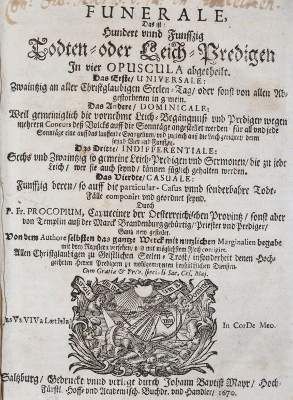 FUNERALE,
Das ist:
Hundert vnnd Funffzig
Todten- oder Leich-Predigen
In vier OPUSCULA abgetheilt.
Das Erste/ UNIVERSALE:
Zwaintzig an aller Christglaubigen Seelen-Tag/ oder sonst von allen Ab-
gestorbenen in gmein.
Das Andere/ DOMINICALE:
Weil gemeiniglich die vornehme Leich-Begängnuß vnd Predigen wegen
mehrern Concurs deß Volcks auff die Sonntäge angestellet werden für all vnd jede
Sonntäge eine auff das wenigste
Das Dritte/ INDIFFERENTIALE:
Sechs vnd Zwaintzig so gemeine Leich-Predigen vnd Sermonen/ die zu jede
Leich/ wer sie auch seynd/ können füglich gehalten werden.
Das Vierdte/ CASUALE:
Funffzig deren/ so auff die particular-Casus vnnd sonderbahre Todt-
Fäll componirt vnd geordnet seynd.
Durch
P. Fr. PROCOPIUM, Capucciner der Oesterreichischen Provintz/ sonst aber
von Templin auß der Marck Brandenburg gebürtig/ Priester vnd Prediger/
Gantz new gestellet.
Von dem Authore selbsten das gantze Werck mit nutzlichen Marginalien begabt
mit dem Register versehen/
Allen Christglaubigen zu Geistlichen Seelen-Trost/ insonderheit denen Hoch-
geehrten Herren Predigern zu
Cum Gratia & Priv. Spec. Sac. Cæs. Maj.
JesVs VIVa LætItIa
In CorDe Meo.
Saltzburg/ Gedruckt vnnd verlegt durch Johann Baptist Mayr/ Hoch-
Fürstl. Hoff- vnd Academisch. Buchdr. vnd Handler/ 1670.